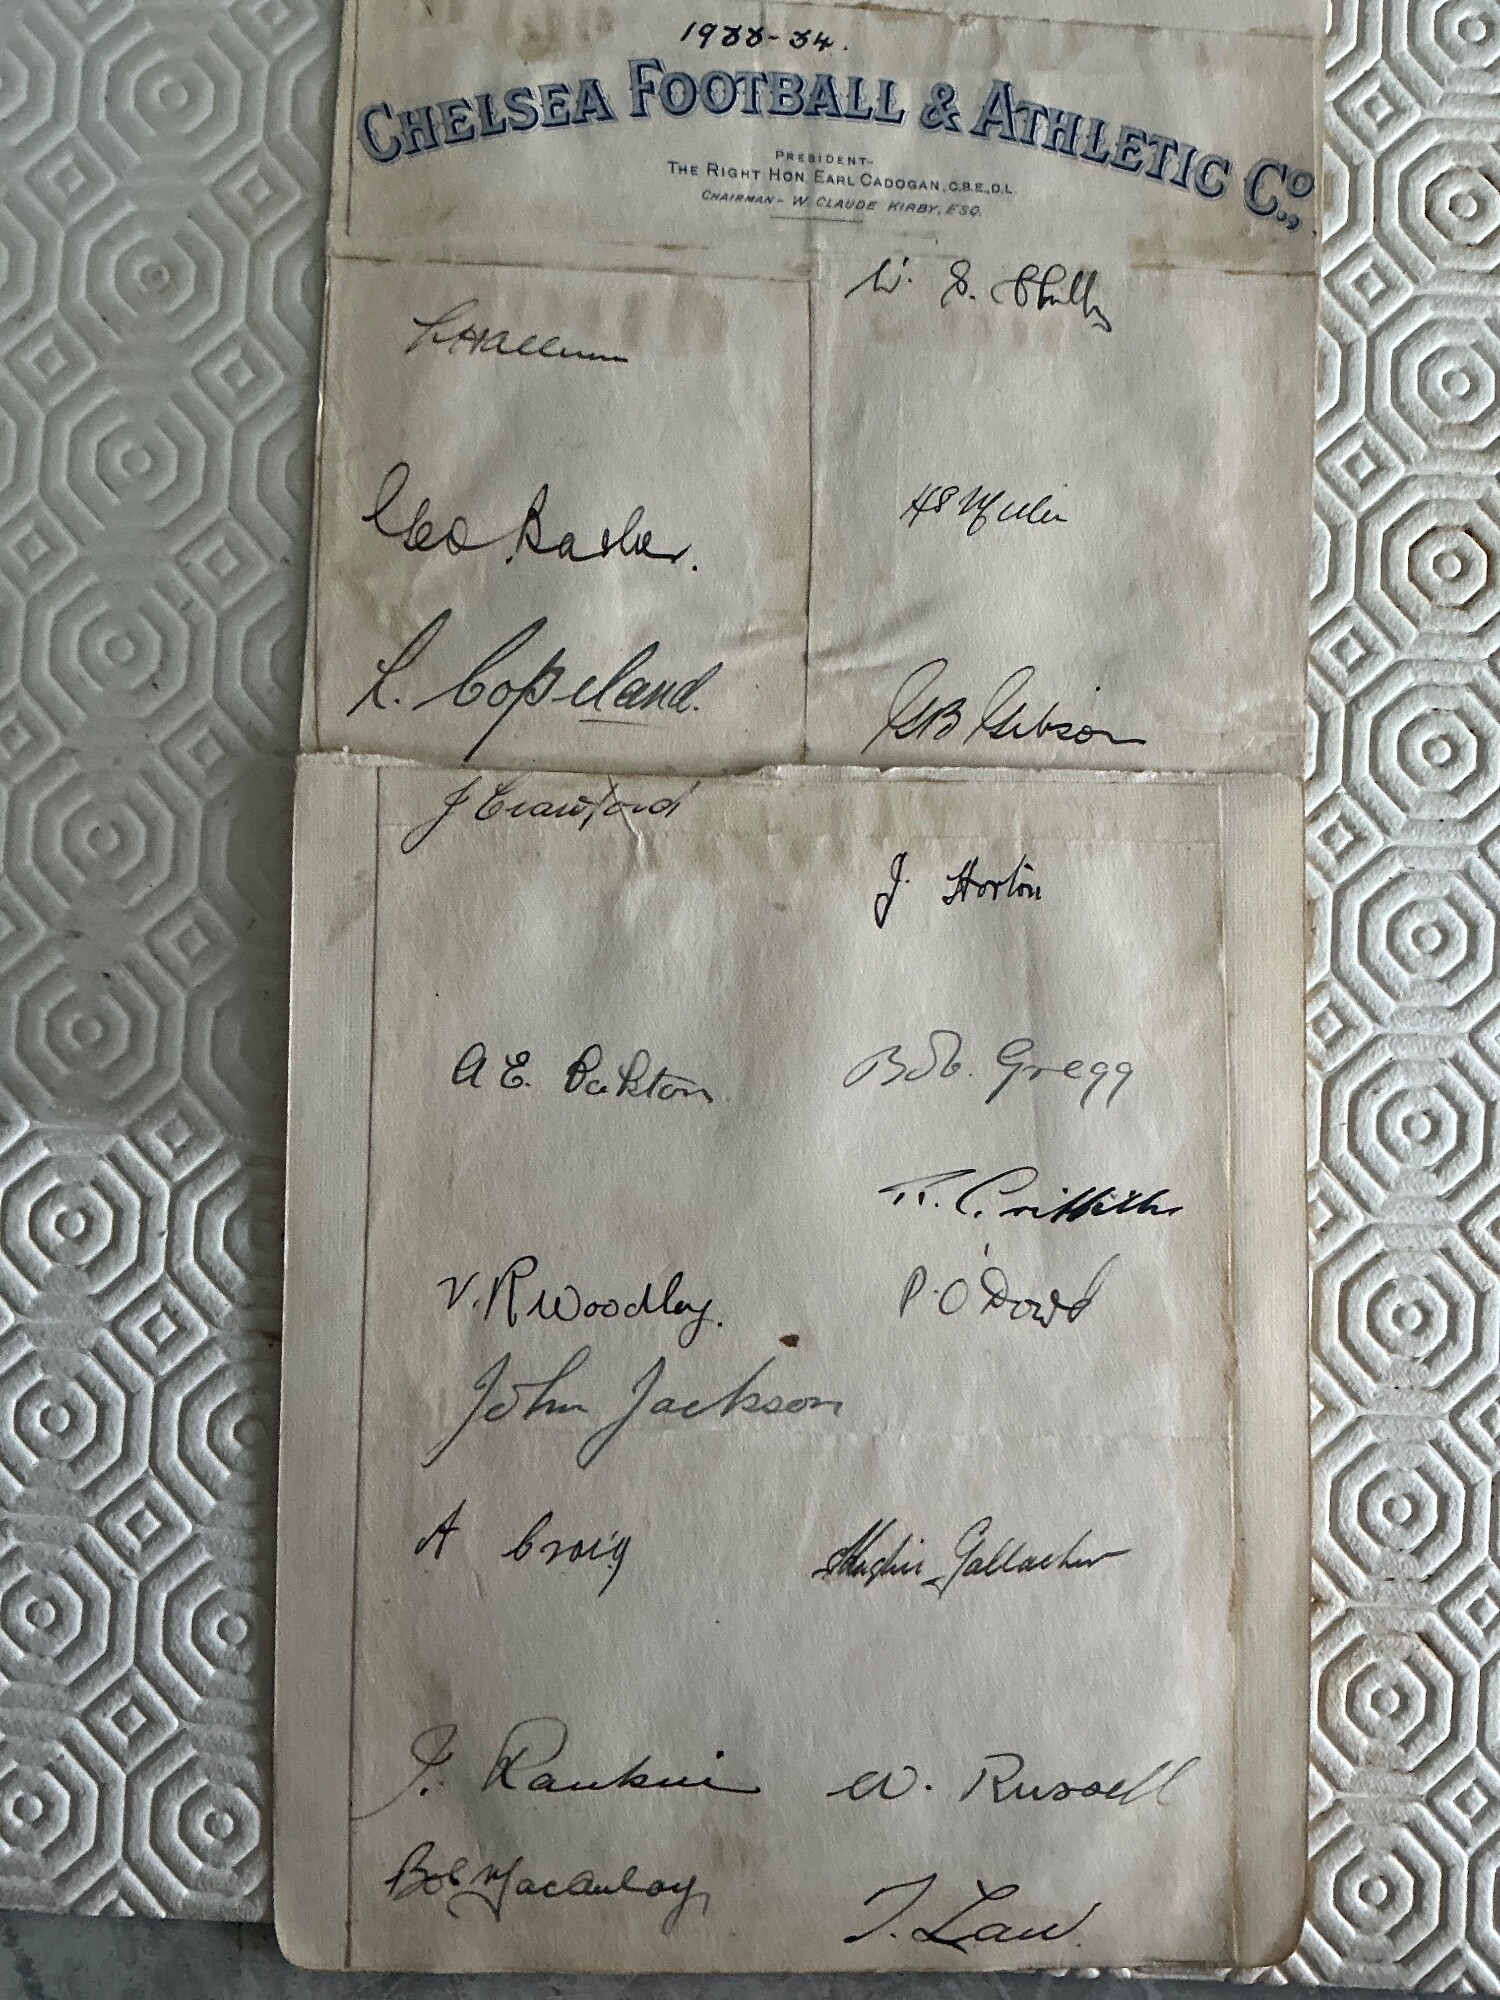 1933-34.
CHELSEA FOOTBALL & ATHLETIC Co.,
PRESIDENT-
THE RIGHT HON EARL CADOGAN, C.B.E., D.L.
CHAIRMAN - W. CLAUDE KIRBY, ESQ.
W. S.
Hallum
Geo Barber.
H S Miller
L. Copeland.
G B Gibson
J Crawford
J. Horton
A E. Oakton
Bob. Gregg
R. Griffiths
V. R Woodley.
P. O'Dowd
John Jackson
A Craig
Hughie Gallacher
J. Rankin
W. Russell
Bob Macaulay
T. Law.